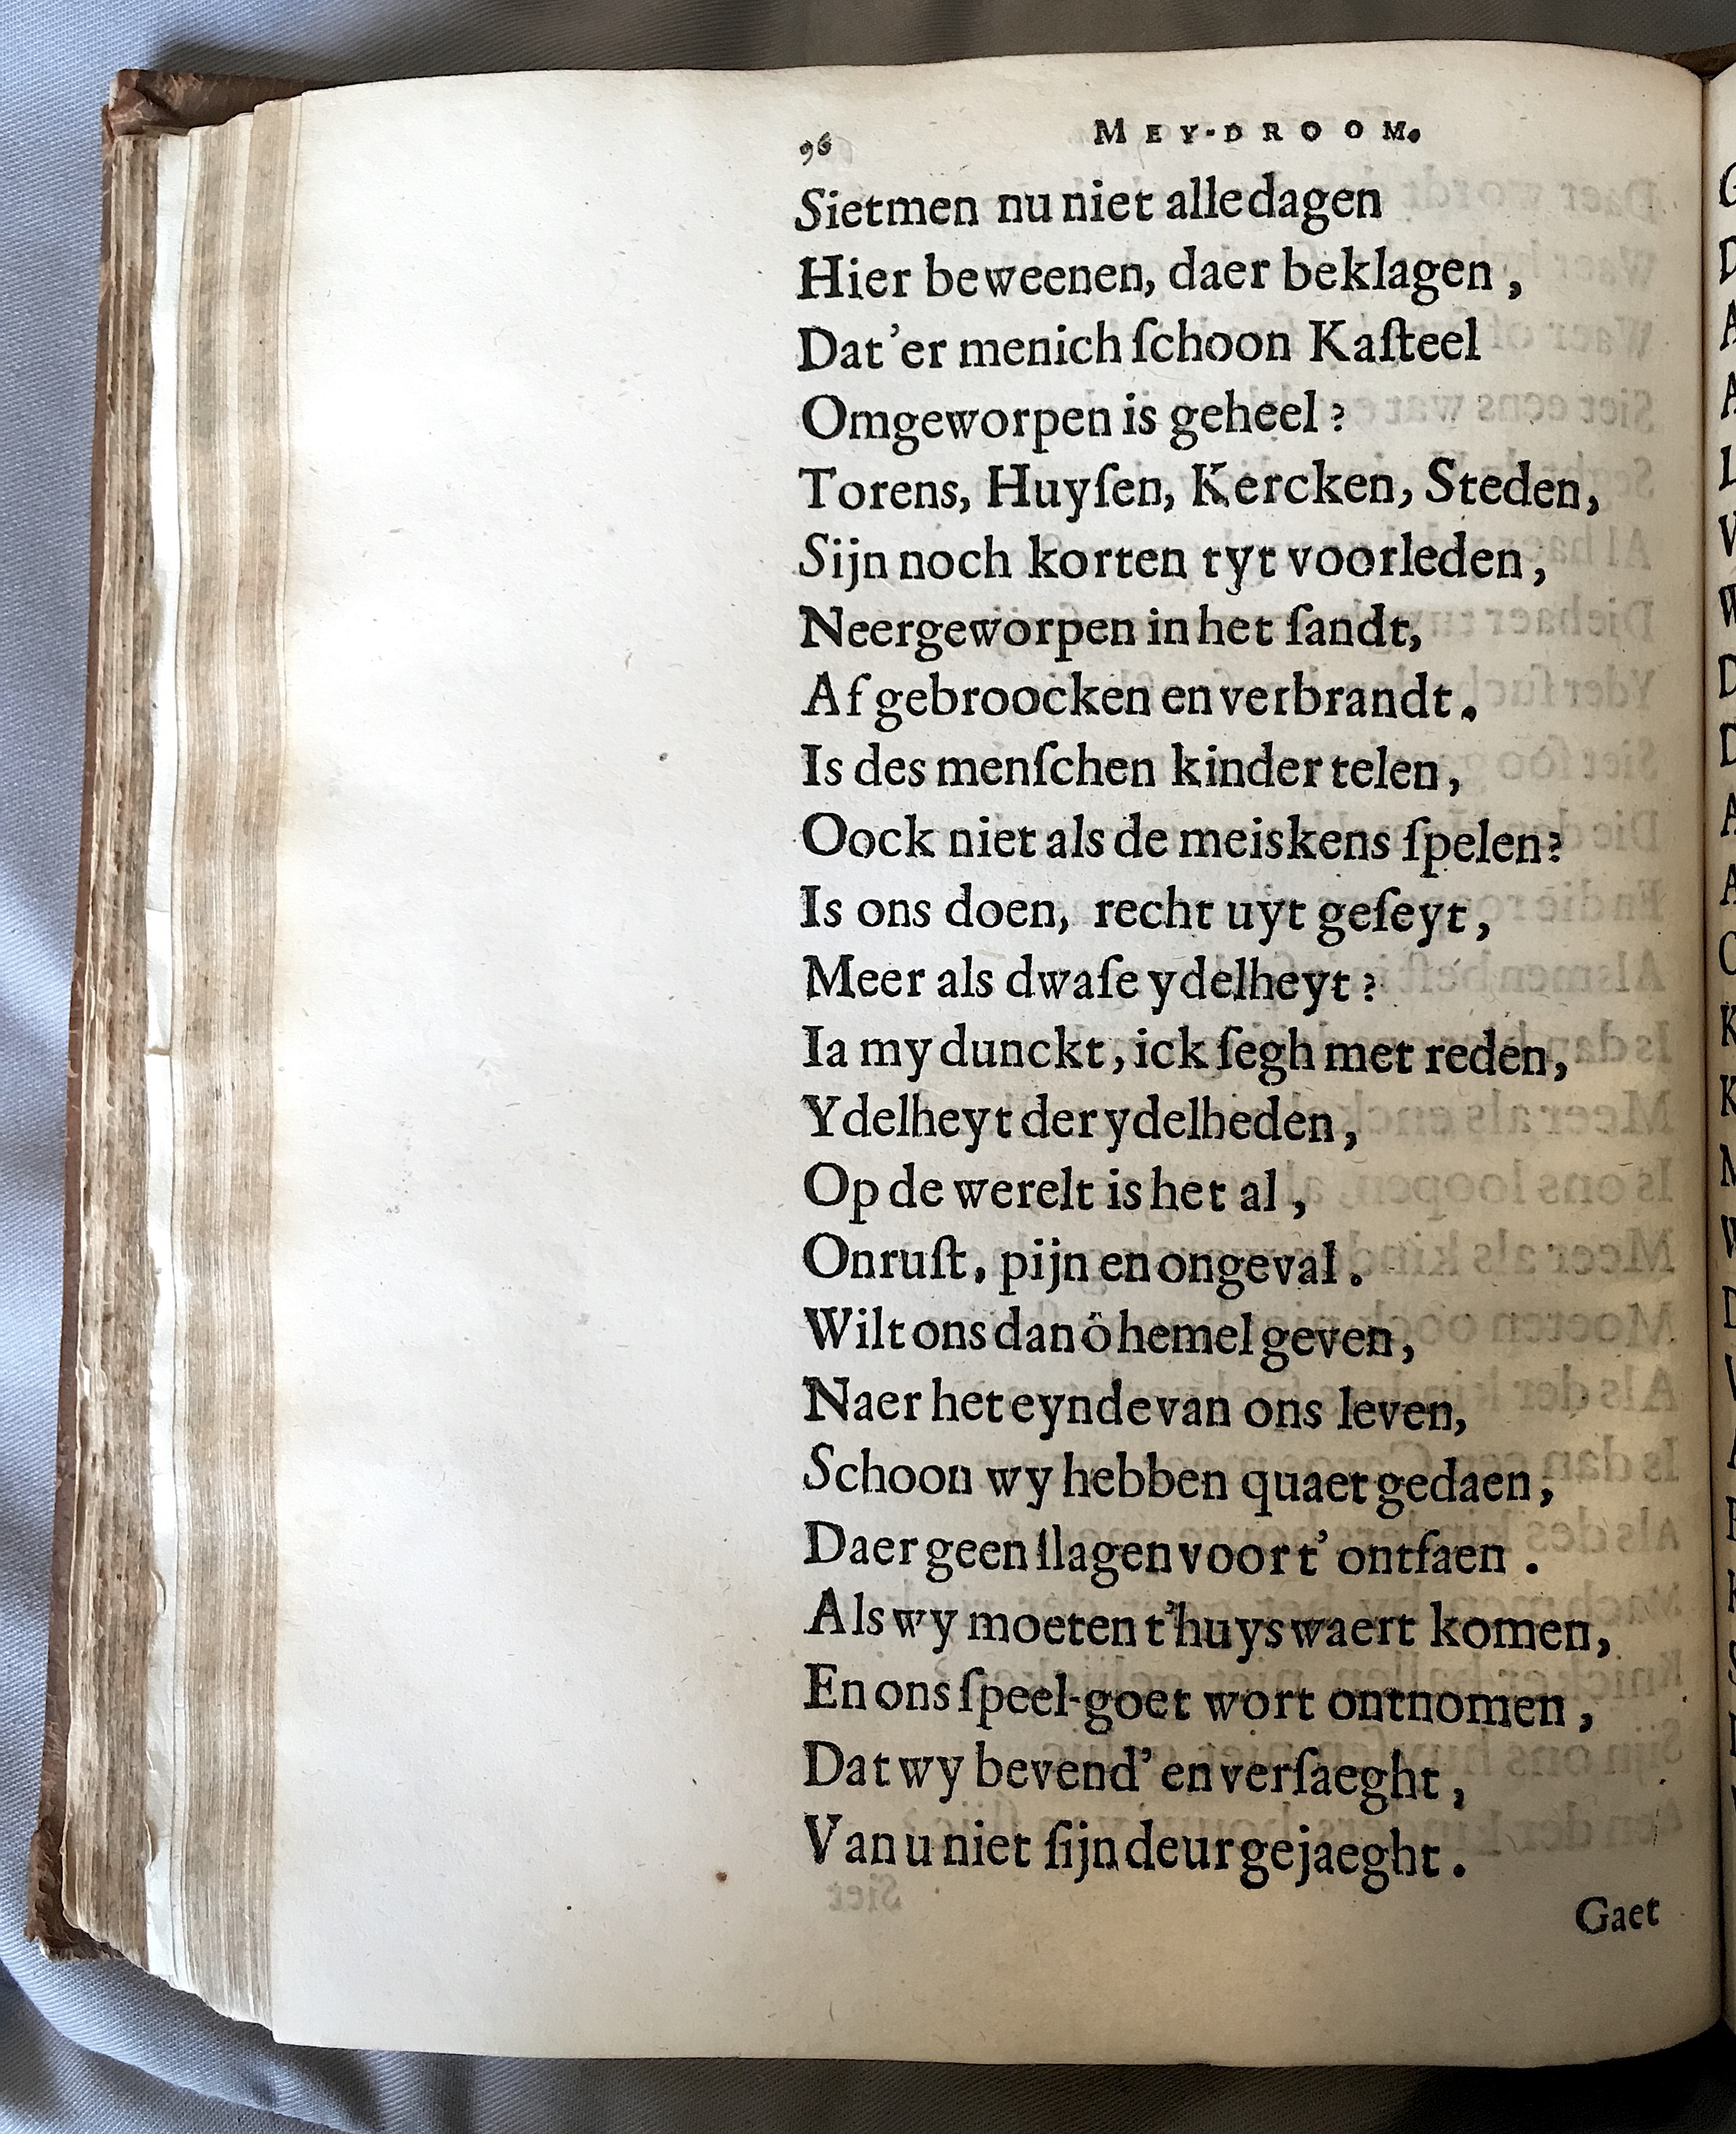 96 MEY-DROOM.
Sietmen nu niet alle dagen
Hier beweenen, daer beklagen,
Dat'er menich ſchoon Kaſteel
Omgeworpen is geheel?
Torens, Huyſen, Kercken, Steden,
Sijn noch korten tyt voorleden,
Neergeworpen in het ſandt,
Af gebroocken en verbrandt.
Is des menſchen kinder telen,
Oock niet als de meiskens ſpelen?
Is ons doen, recht uyt geſeyt,
Meer als dwaſe ydelheyt?
Ia my dunckt, ick ſegh met reden,
Ydelheyt der ydelheden,
Op de werelt is het al,
Onruſt, pijn en ongeval.
Wilt ons dan ô hemel geven,
Naer het eynde van ons leven,
Schoon wy hebben quaet gedaen,
Daer geen ſlagen voor t' ontfaen.
Als wy moeten t'huyswaert komen,
En ons ſpeel-goet wort ontnomen,
Dat wy bevend' en verſaeght,
Van u niet ſijn deurgejaeght.
Gaet